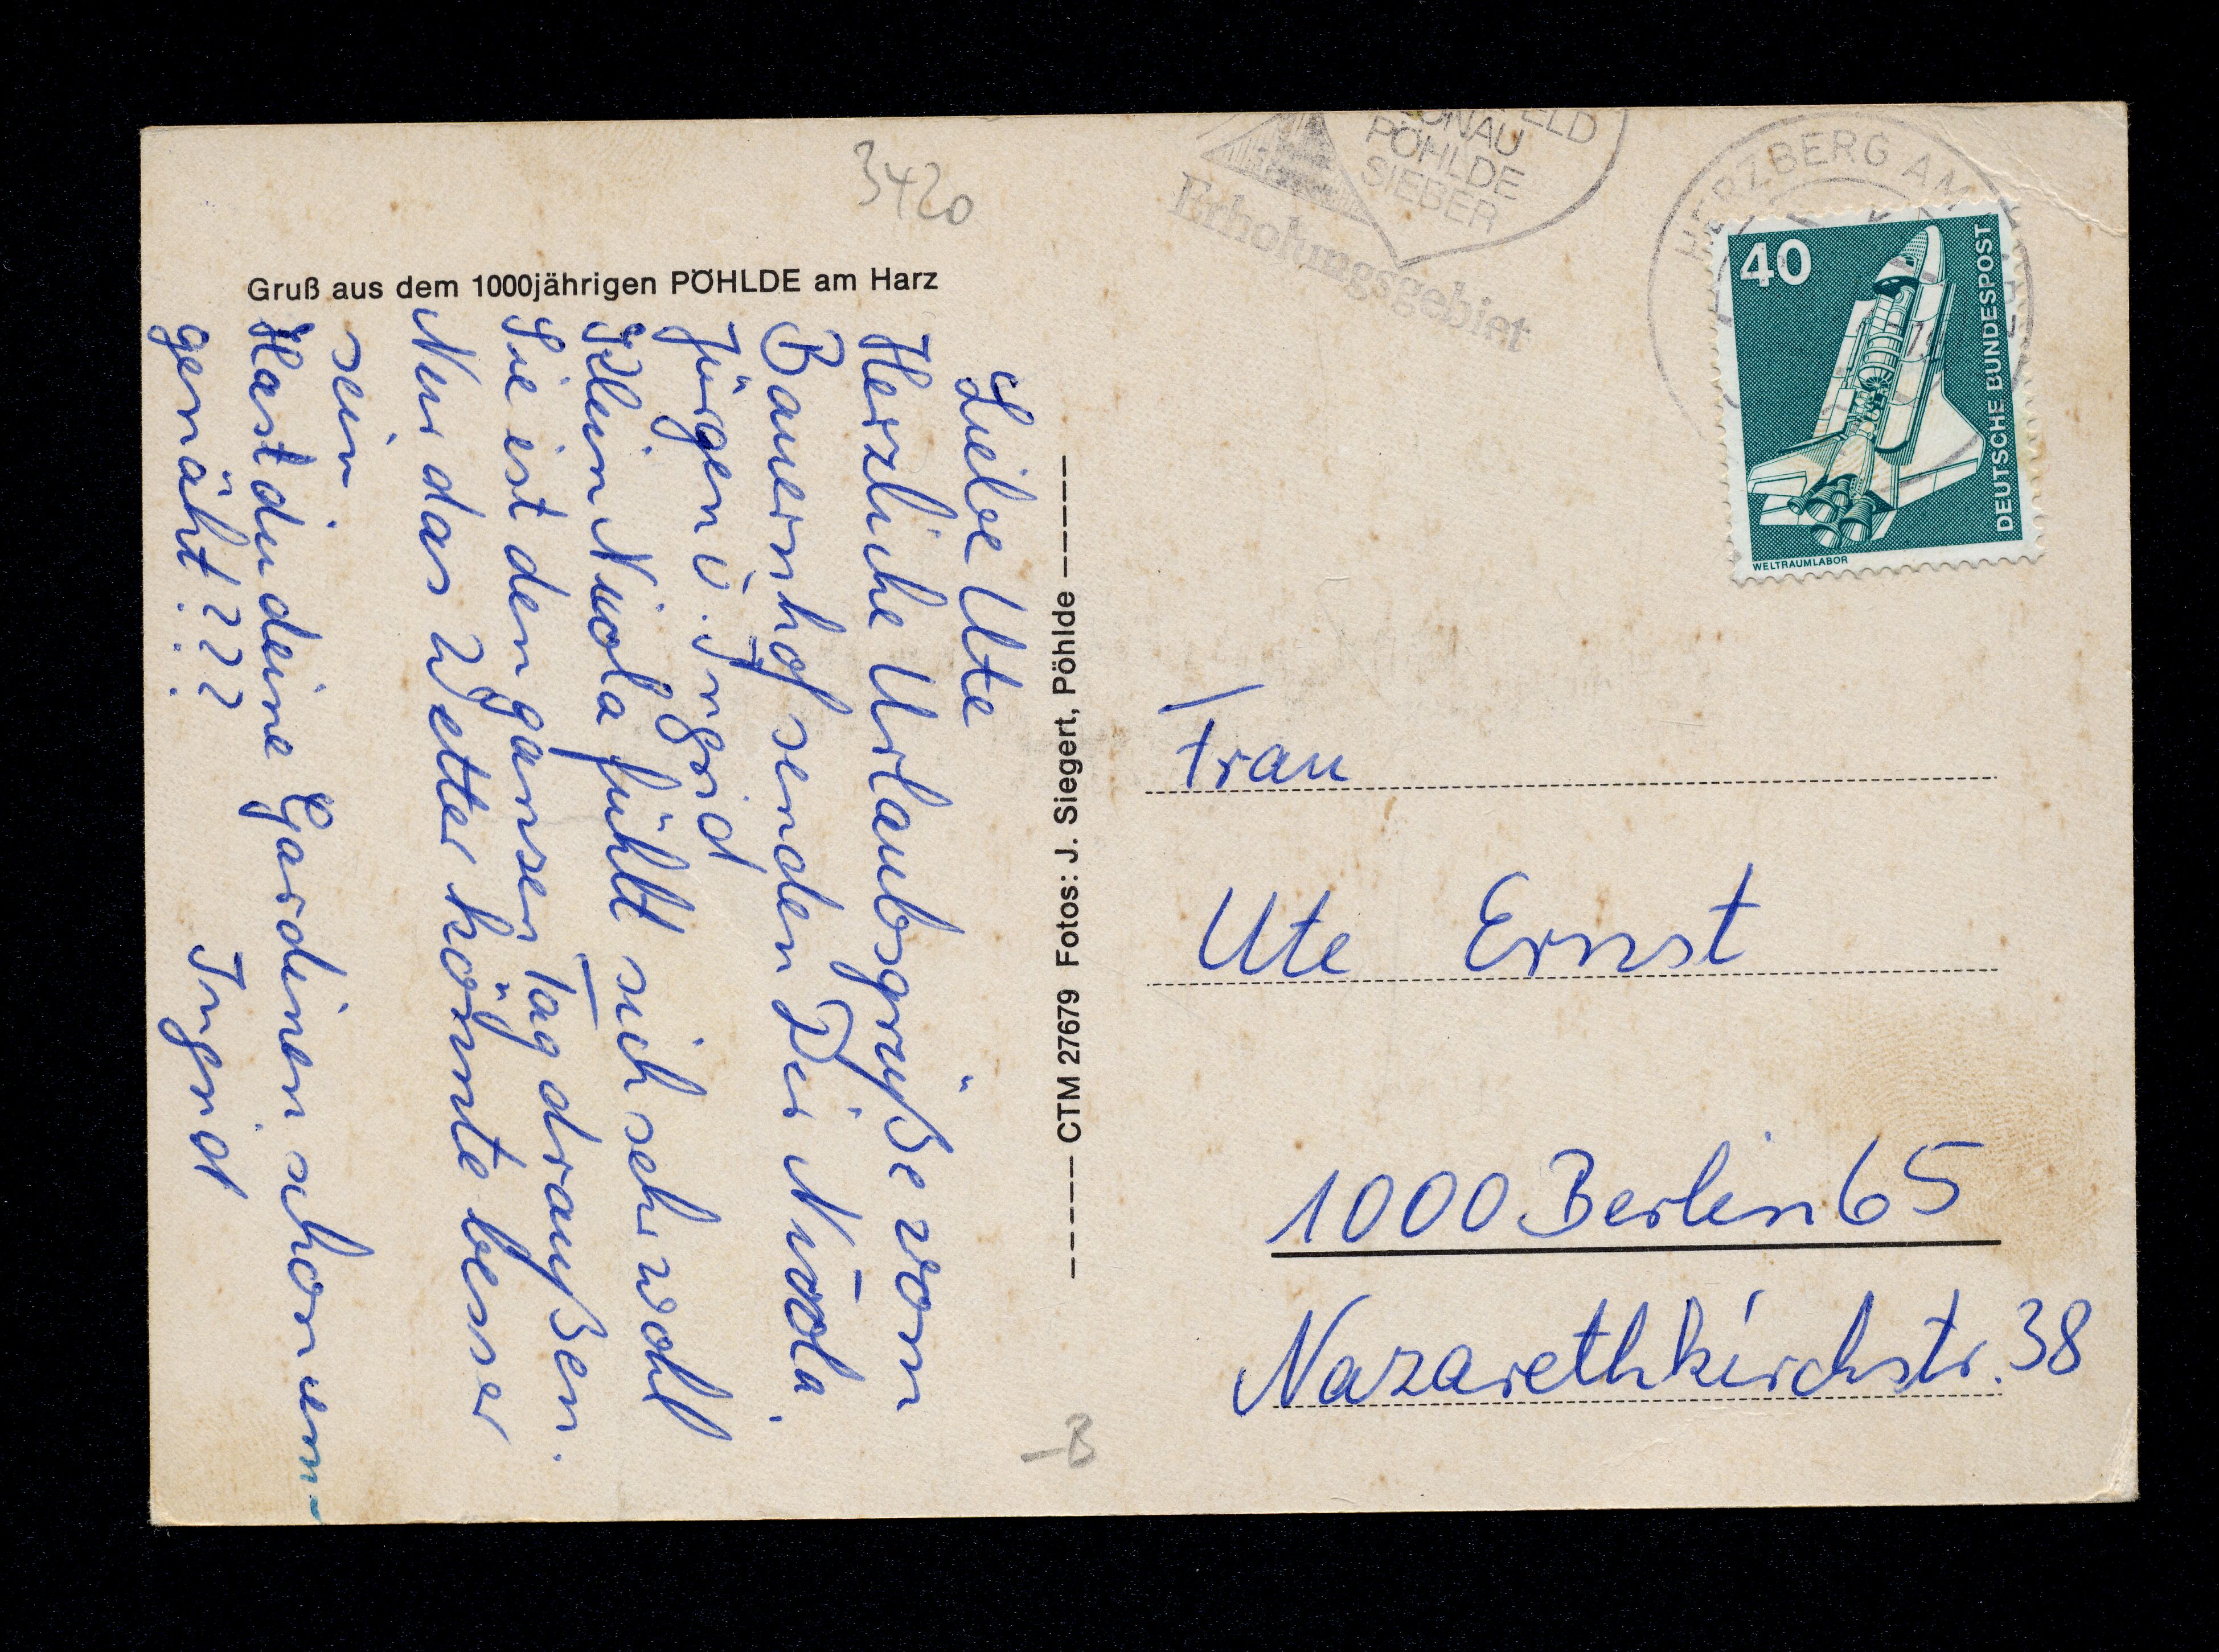 3420
Gruß aus dem 1000jährigen PÖHLDE am Harz
Liebe Ute
Herzliche Urlaubsgrüße vom
Bauernhof senden Dir Nicola
Jürgen u. Ingrid
Klein Nicola fühlt sich sehr wohl
Sie ist den ganzen Tag draußen.
Nur das Wetter könnte besser
sein
Hast du deine Gardinen schon um-
genäht????
Ingrid
CTM 27679 Fotos: J. Siegert, Pöhlde
PÖHLDE
SIEBER
Erholungsgebiet
HERZBERG AM
40
DEUTSCHE BUNDESPOST
WELTRAUMLABOR
Frau
Ute Ernst
1000 Berlin 65
Nazarethkirchstr. 38
-B